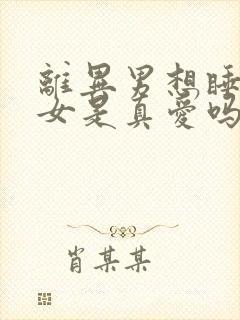 離異男想睡
女是真愛嗎
肖某某